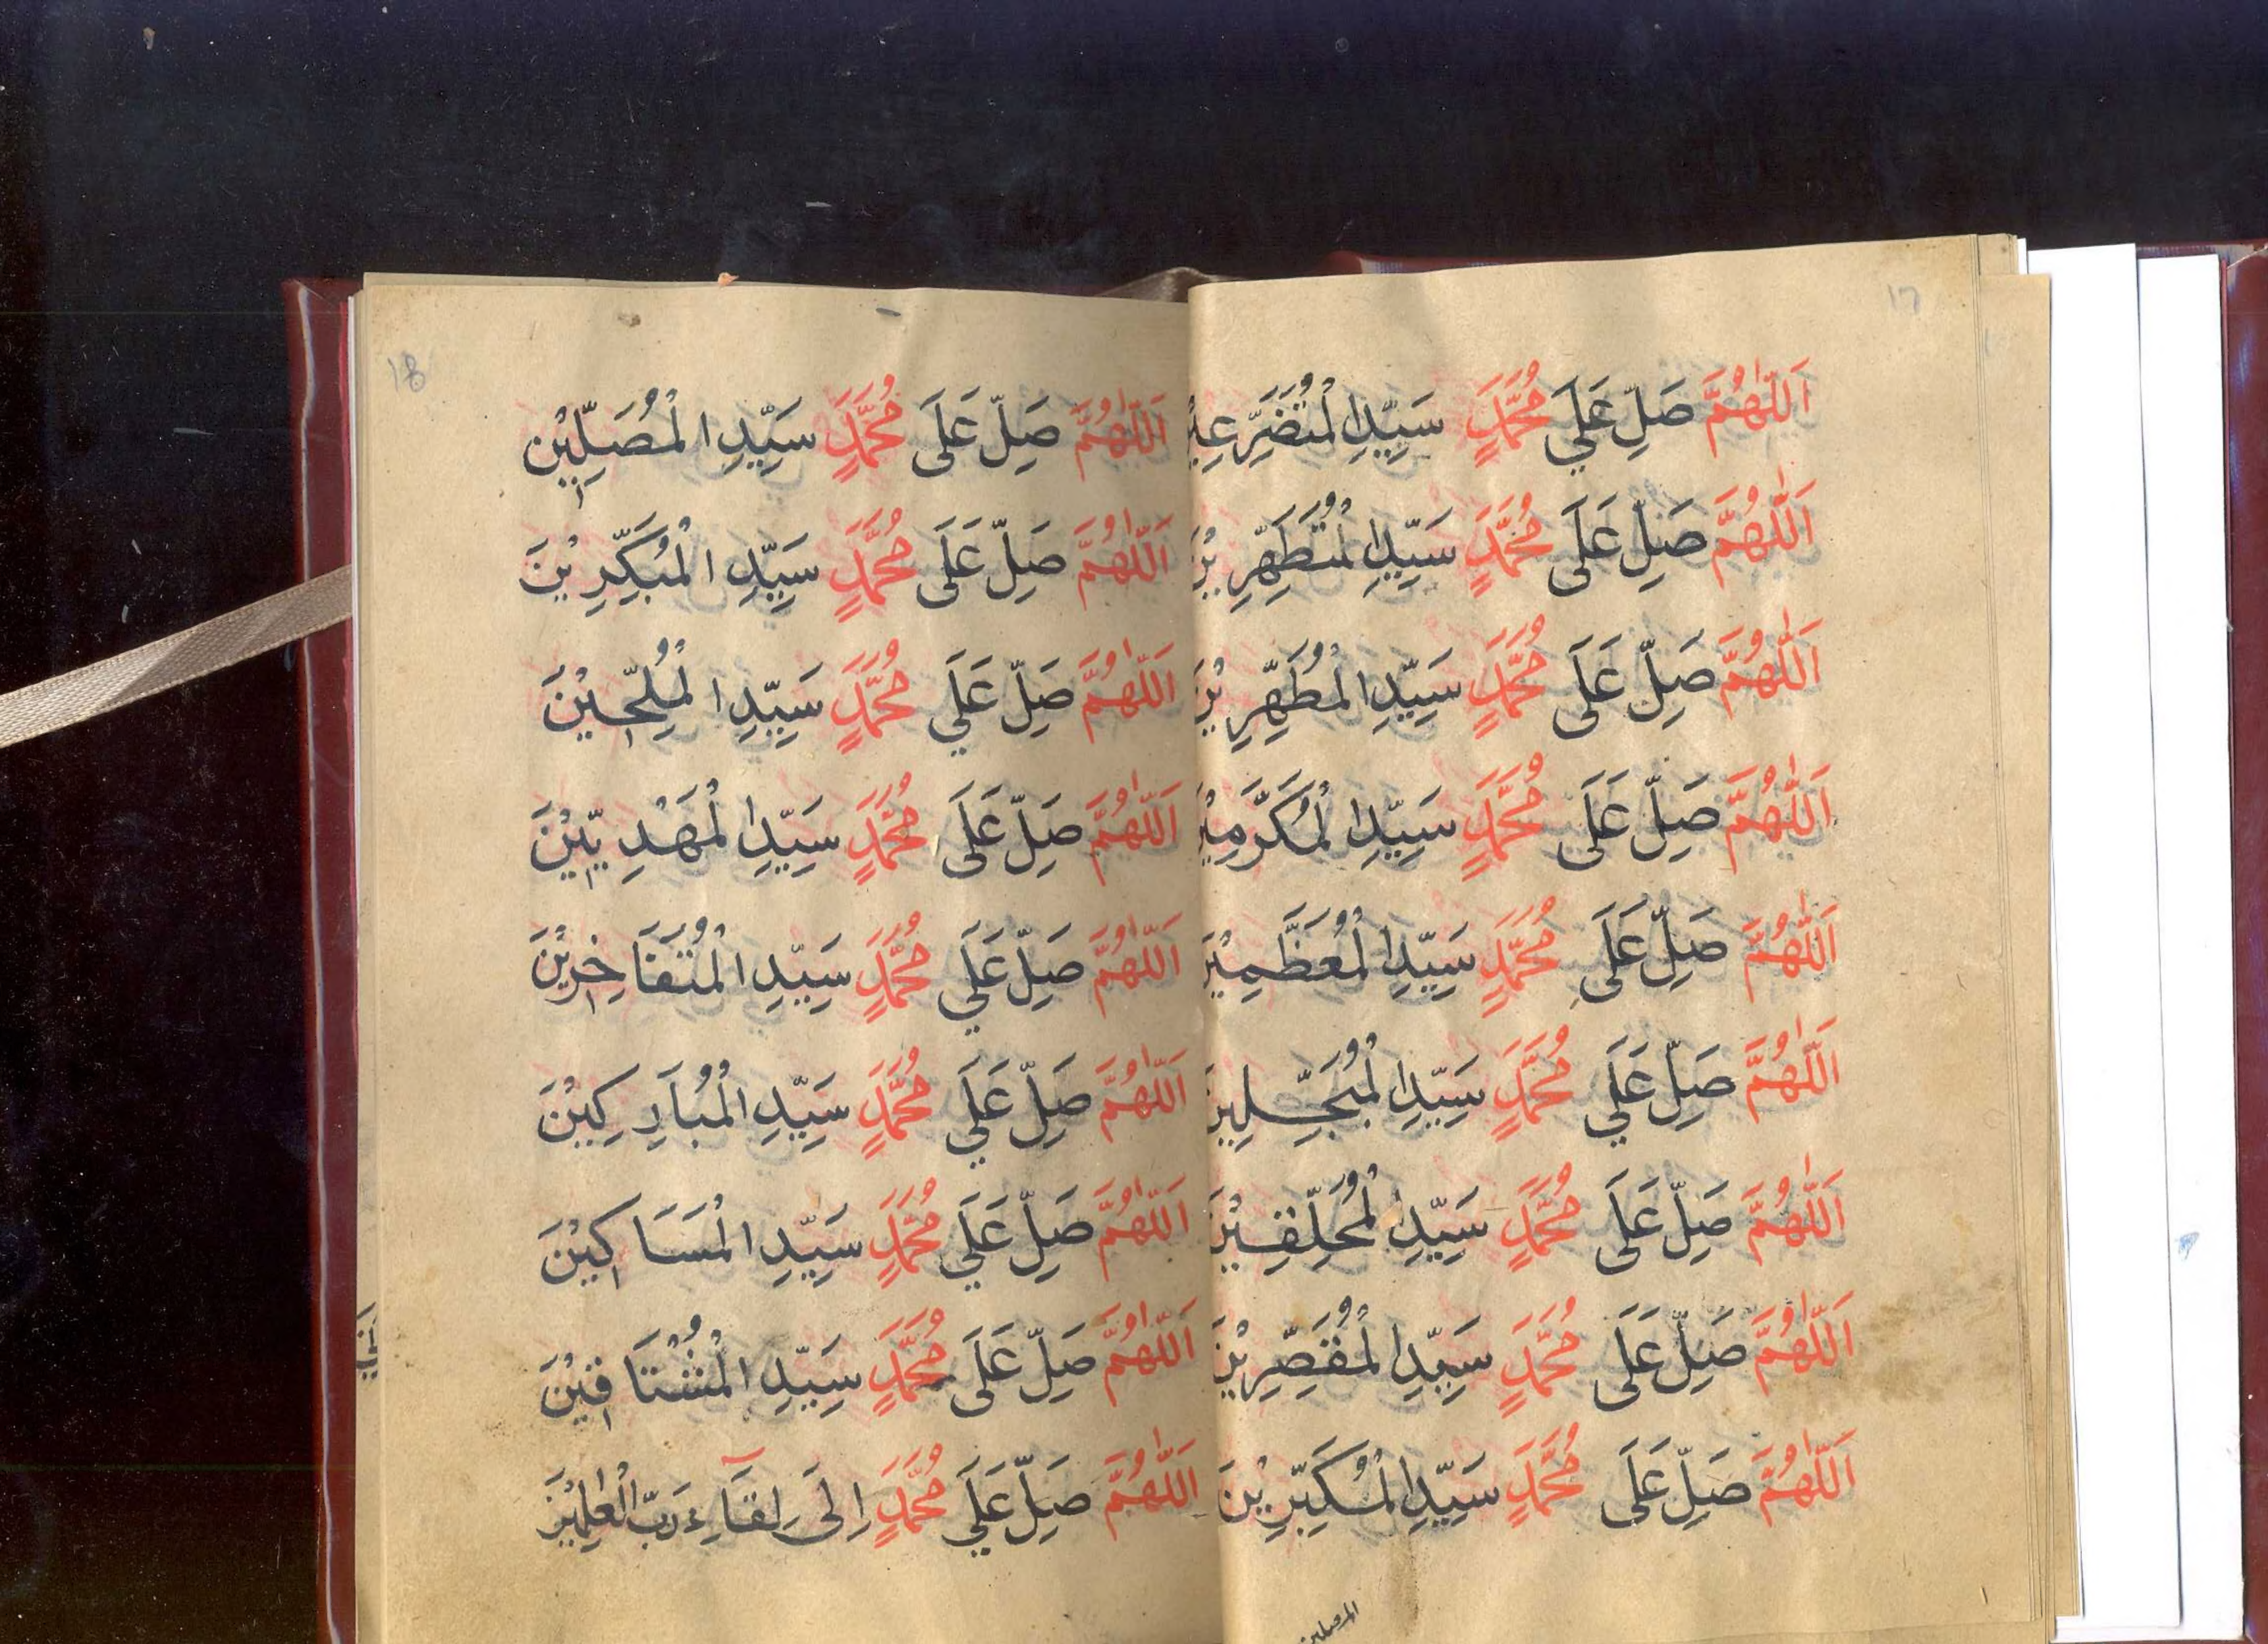 17
اَللّٰهُمَّ صَلِّ عَلَي مُحَمَّدٍ سَيِّدِ الْمُتَضَرِّعِيْ
اَللّٰهُمَّ صَلِّ عَلَى مُحَمَّدٍ سَيِّدِ الْمُتَطَهِّرِيْنَ
اَللّٰهُمَّ صَلِّ عَلَى مُحَمَّدٍ سَيِّدِ الْمُطَهِّرِيْنَ
اَللّٰهُمَّ صَلِّ عَلَى مُحَمَّدٍ سَيِّدِ الْمُكَرَّمِيْنَ
اَللّٰهُمَّ صَلِّ عَلَى مُحَمَّدٍ سَيِّدِ الْمُعَظَّمِيْنَ
اَللّٰهُمَّ صَلِّ عَلَي مُحَمَّدٍ سَيِّدِ الْمُبَجِّلِيْنَ
اَللّٰهُمَّ صَلِّ عَلَى مُحَمَّدٍ سَيِّدِ الْمُحَلِّقِيْنَ
اَللّٰهُمَّ صَلِّ عَلَى مُحَمَّدٍ سَيِّدِ الْمُقَصِّرِيْنَ
اَللّٰهُمَّ صَلِّ عَلَى مُحَمَّدٍ سَيِّدِ الْمُكَبِّرِيْنَ
18
اَللّٰهُمَّ صَلِّ عَلَى مُحَمَّدٍ سَيِّدِ الْمُصَلِّيْن
اَللّٰهُمَّ صَلِّ عَلَى مُحَمَّدٍ سَيِّدِ الْمُبَكِّرِيْنَ
اَللّٰهُمَّ صَلِّ عَلَي مُحَمَّدٍ سَيِّدِ الْمُلِحِّيْنَ
اَللّٰهُمَّ صَلِّ عَلَى مُحَمَّدٍ سَيِّدِ الْمَهْدِيِّيْنَ
اَللّٰهُمَّ صَلِّ عَلَي مُحَمَّدٍ سَيِّدِ الْمُتَفَاخِرِيْنَ
اَللّٰهُمَّ صَلِّ عَلَي مُحَمَّدٍ سَيِّدِ الْمُبَارِكِيْنَ
اَللّٰهُمَّ صَلِّ عَلَي مُحَمَّدٍ سَيِّدِ الْمَسَاكِيْنَ
اَللّٰهُمَّ صَلِّ عَلَى مُحَمَّدٍ سَيِّدِ الْمُشْتَاقِيْنَ
اَللّٰهُمَّ صَلِّ عَلَي مُحَمَّدٍ اِلَى لِقَآءِ رَبِّ الْعٰلَمِيْنَ